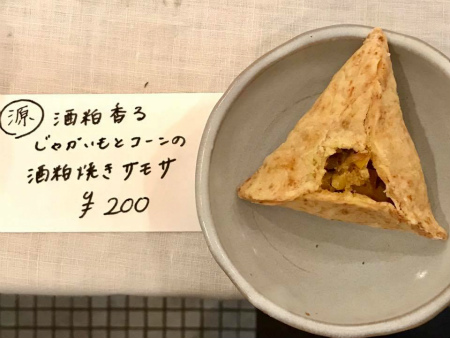 源 酒粕香る
じゃがいもとコーンの
酒粕焼きサモサ
¥200